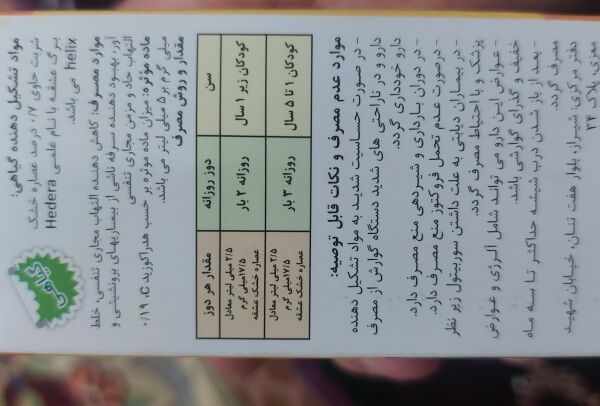 گیاهی
مواد تشکیل دهنده گیاهی:
شربت حاوی ۰/۷ درصد عصاره خشک
برگ عشقه با نام علمی Hedera
helix می باشد.
موارد مصرف: کاهش دهنده التهاب مجاری تنفسی، خلط
آور، بهبود دهنده سرفه ناشی از بیماریهای برونشیتی و
التهاب حاد و مزمن مجاری تنفسی
ماده موثره: میزان ماده موثره بر حسب هدراکوزید C، ۰/۱۹
میلی گرم بر ۵ میلی لیتر می باشد.
مقدار و روش مصرف
سن دوز روزانه مقدار هر دوز
کودکان زیر ۱ سال روزانه ۲ بار ۲/۵ میلی لیتر معادل
۱۷/۵میلی گرم
عصاره خشک عشقه
کودکان ۱ تا ۵ سال روزانه ۳ بار ۲/۵ میلی لیتر معادل
۱۷/۵میلی گرم
عصاره خشک عشقه
موارد عدم مصرف و نکات قابل توصیه:
- در صورت حساسیت شدید به مواد تشکیل دهنده
دارو و در ناراحتی های شدید دستگاه گوارش از مصرف
دارو خودداری گردد.
- در دوران بارداری و شیردهی منع مصرف دارد.
- درصورت عدم تحمل فروکتوز منع مصرف دارد.
- در بیماران دیابتی به علت داشتن سوربیتول زیر نظر
پزشک و با احتیاط مصرف گردد.
- عوارض این دارو می تواند شامل آلرژی و عوارض
خفیف و گذرای گوارشی باشد.
- بعد از باز شدن درب شیشه حداکثر تا سه ماه
مصرف گردد.
دفتر مرکزی: شیراز، بلوار هفت تنان، خیابان شهید
معزی، پلاک ۳۴